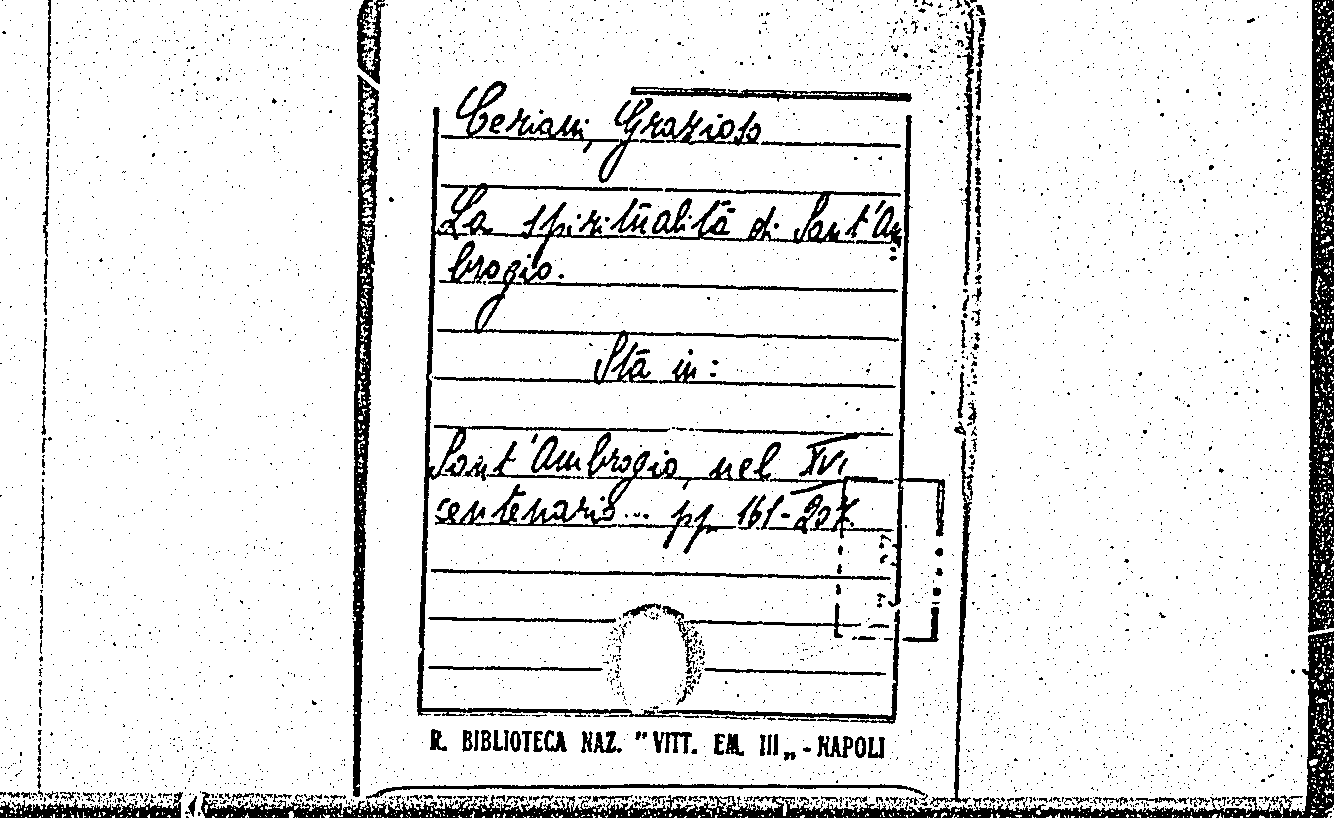 Ceriani, Grazioso
La spiritualità di Sant'Am
brogio.
Stà in:
Sant'Ambrogio, nel XVI
centenario... pp. 161-207.
R. BIBLIOTECA NAZ. "VITT. EM. III„ - NAPOLI